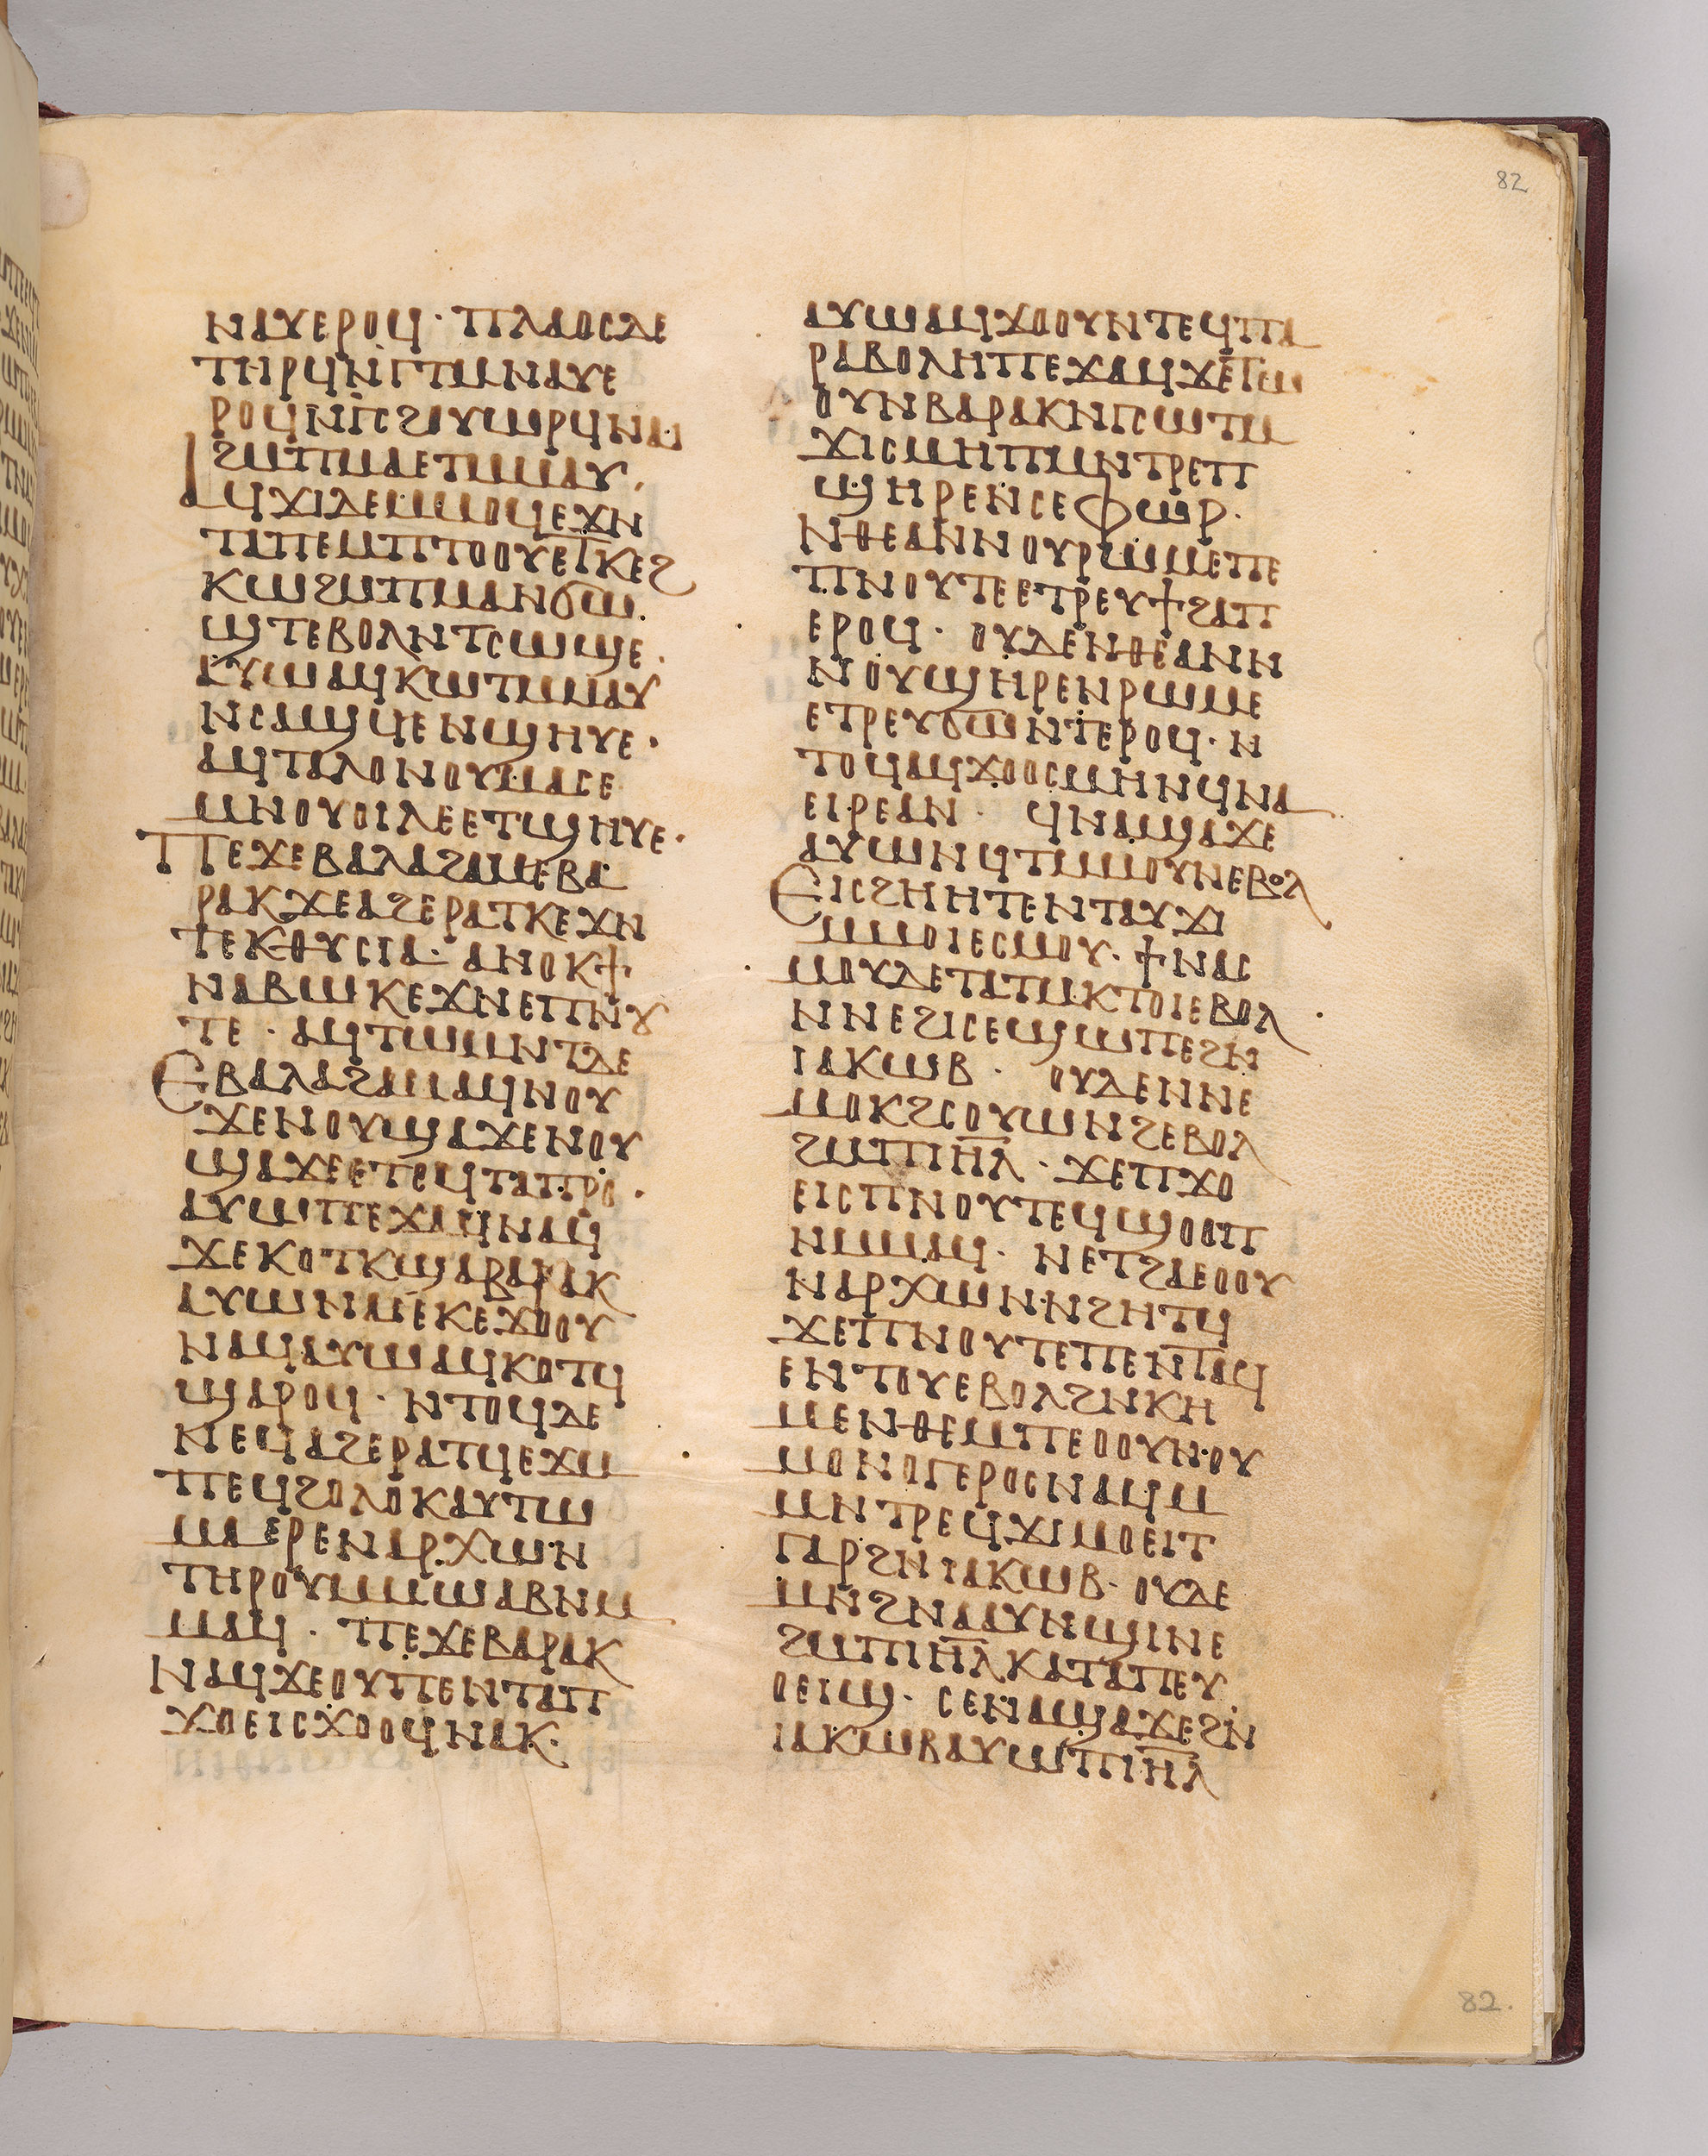 82
ⲛⲁⲩⲉⲣⲟϥ · ⲡⲗⲁⲟⲥⲇⲉ
ⲧⲏⲣϥⲛⲅⲧⲙⲛⲁⲩⲉ
ⲣⲟϥⲛⲅⲥϩⲟⲩⲱⲣϥⲛⲁⲓ
ϩⲙⲡⲙⲁⲉⲧⲙⲙⲁⲩ ·
ⲁϥϫⲓⲇⲉⲙⲙⲟϥⲉϫⲛ
ⲧⲁⲡⲉⲙⲡⲧⲟⲟⲩⲉⲧⲕⲉϩ
ⲕⲱϩⲙⲡⲙⲁⲛϭⲱ
ϣⲧⲉⲃⲟⲗⲛⲧⲥⲱϣⲉ ·
ⲁⲩⲱⲁϥⲕⲱⲧⲙⲙⲁⲩ
ⲛⲥⲁϣϥⲉⲛϣⲏⲩⲉ ·
ⲁϥⲧⲁⲗⲟⲛⲟⲩⲙⲁⲥⲉ
ⲙⲛⲟⲩⲟⲓⲗⲉⲉⲧϣⲏⲩⲉ ·
ⲡⲉϫⲉⲃⲁⲗⲁϩⲁⲙⲉⲃⲁ
ⲣⲁⲕϫⲉⲁϩⲉⲣⲁⲧⲕⲉϫⲛ
ⲧⲉⲕⲑⲩⲥⲓⲁ · ⲁⲛⲟⲕϯ
ⲛⲁⲃⲱⲕⲉϫⲛⲉⲡⲛⲟⲩ
ⲧⲉ · ⲁϥⲧⲱⲙⲛⲧⲇⲉ
ⲉⲃⲁⲗⲁϩⲁⲙⲁϥⲛⲟⲩ
ϫⲉⲛⲟⲩϣⲁϫⲉⲛⲟⲩ
ϣⲁϫⲉⲉⲧⲉϥⲧⲁⲡⲣⲟ ·
ⲁⲩⲱⲡⲉϫⲁϥⲛⲁϥ
ϫⲉⲕⲟⲧⲕϣⲁⲃⲁⲣⲁⲕ
ⲁⲩⲱⲛⲁⲓⲉⲕⲉϫⲟⲟⲩ
ⲛⲁϥⲁⲩⲱⲁϥⲕⲟⲧϥ
ϣⲁⲣⲟϥ · ⲛⲧⲟϥⲇⲉ
ⲛⲉϥⲁϩⲉⲣⲁⲧϥⲉϫⲙ
ⲡⲉϥϩⲟⲗⲟⲕⲁⲩⲧⲱ
ⲙⲁⲉⲣⲉⲛⲁⲣⲭⲱⲛ
ⲧⲏⲣⲟⲩⲙⲙⲱⲁⲃⲛⲙ
ⲙⲁϥ · ⲡⲉϫⲉⲃⲁⲣⲁⲕ
ⲛⲁϥϫⲉⲟⲩⲡⲉⲛⲧⲁⲡ
ϫⲟⲉⲓⲥϫⲟⲟϥⲛⲁⲕ ·
ⲁⲩⲱⲁϥϫⲟⲟⲩⲛⲧⲉϥⲡⲁ
ⲣⲁⲃⲟⲗⲏⲡⲉϫⲁϥϫⲉⲧⲱ
ⲟⲩⲛⲃⲁⲣⲁⲕⲛⲅⲥⲱⲧⲙ
ϫⲓⲥⲙⲏⲡⲙⲛⲧⲣⲉⲡ
ϣⲏⲣⲉⲛⲥⲉⲫⲱⲣ ·
ⲛⲑⲉⲁⲛⲛⲟⲩⲣⲱⲙⲉⲡⲉ
ⲡⲛⲟⲩⲧⲉⲉⲧⲣⲉⲩϯϩⲁⲡ
ⲉⲣⲟϥ · ⲟⲩⲇⲉⲛⲑⲉⲁⲛⲛ
ⲛⲟⲩϣⲏⲣⲉⲛⲣⲱⲙⲉ
ⲉⲧⲣⲉⲩϭⲱⲛⲧⲉⲣⲟϥ · ⲛ
ⲧⲟϥⲁϥϫⲟⲟⲥⲙⲏⲛϥⲛⲁ
ⲉⲓⲣⲉⲁⲛ · ϥⲛⲁϣⲁϫⲉ
ⲁⲩⲱⲛϥⲧⲙⲙⲟⲩⲛⲉⲃⲟⲗ
ⲉⲓⲥϩⲏⲏⲧⲉⲛⲧⲁⲩϫⲓ
ⲙⲙⲟⲓⲉⲥⲙⲟⲩ · ϯⲛⲁⲥ
ⲙⲟⲩⲇⲉⲧⲁⲧⲙⲕⲧⲟⲓⲉⲃⲟⲗ
ⲛⲛⲉϩⲓⲥⲉϣⲱⲡⲉϩⲛ
ⲓⲁⲕⲱⲃ · ⲟⲩⲇⲉⲛⲛⲉ
ⲙⲟⲕϩⲥⲟⲩⲱⲛϩⲉⲃⲟⲗ
ϩⲙⲡⲓⲏⲗ · ϫⲉⲡϫⲟ
ⲉⲓⲥⲡⲛⲟⲩⲧⲉϥϣⲟⲟⲡ
ⲛⲙⲙⲁϥ · ⲛⲉⲧϩⲁⲉⲟⲟⲩ
ⲛⲁⲣⲭⲱⲛⲛϩⲏⲧϥ
ϫⲉⲡⲛⲟⲩⲧⲉⲡⲉⲛⲧⲁϥ
ⲉⲛⲧⲟⲩⲉⲃⲟⲗϩⲛⲕⲏ
ⲙⲉⲛⲑⲉⲙⲡⲉⲟⲟⲩⲛⲟⲩ
ⲙⲟⲛⲟⲅⲉⲣⲟⲥⲛⲁϥⲙ
ⲙⲛⲧⲣⲉϥϫⲓⲙⲟⲉⲓⲧ
ⲅⲁⲣϩⲛⲓⲁⲕⲱⲃ · ⲟⲩⲇⲉ
ⲙⲛϩⲛⲁⲁⲩⲛϣⲓⲛⲉ
ϩⲙⲡⲓⲏⲗⲕⲁⲧⲁⲡⲉⲩ
ⲟⲉⲓϣ · ⲥⲉⲛⲁϣⲁϫⲉϩⲛ
ⲓⲁⲕⲱⲃⲁⲩⲱⲡⲓⲏⲗ
82.